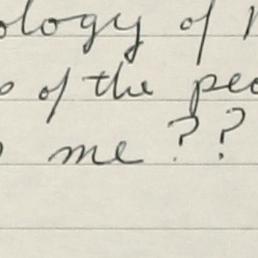 ology of
of the
me ??